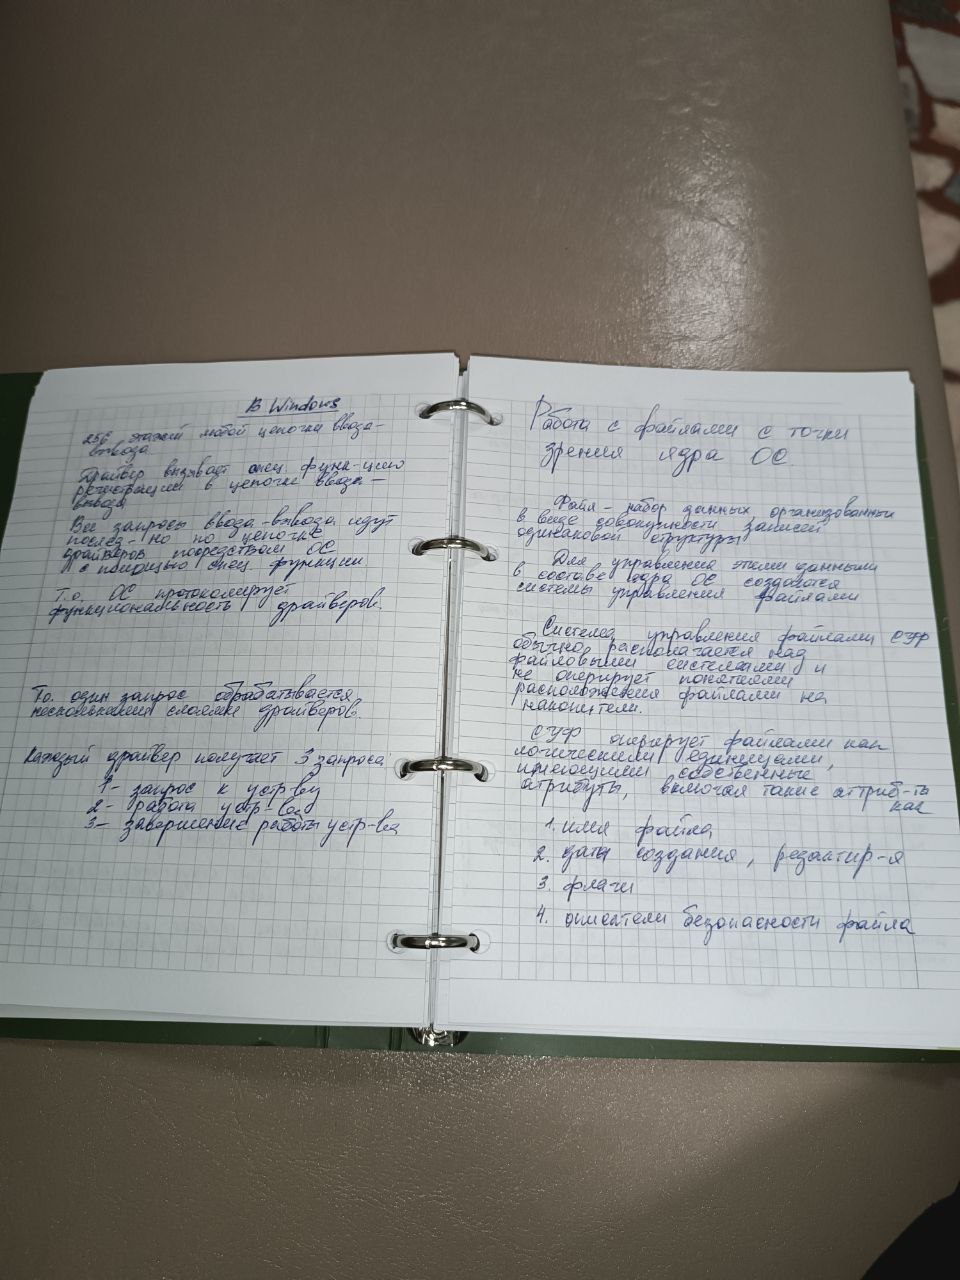 В Windows
256 этажей любой цепочки ввоза-
вывоза
Драйвер вызывает спец. функ-цию
регистрации в цепочке ввоза-
вывоза
Все запросы ввоза-вывоза идут
послед-но по цепочке
драйверов посредством ОС
с помощью спец. функции.
Т.о. ОС протоколирует
функциональность драйверов.
То. один запрос обрабатывается
несколькими слоями драйверов.
Каждый драйвер получает 3 запроса
1- запрос к устр-ву
2- работа устр-ва
3- завершение работы устр-ва
Работа с файлами с точки
зрения ядра ОС.
Файл - набор данных организованный
в виде совокупности записей
одинаковой структуры
Для управления этими данными
в составе ядра ОС создаются
системы управления файлами
Система управления файлами СУФ
обычно располагается над
файловыми системами и
не оперирует понятиями
расположения файлами на
накопители.
СУФ оперирует файлами как
логическими единицами,
атрибуты, включая такие аттриб-ты
как
1. имя файла
2. даты создания, редактир-я
3. флаги
4. описатели безопасности файла